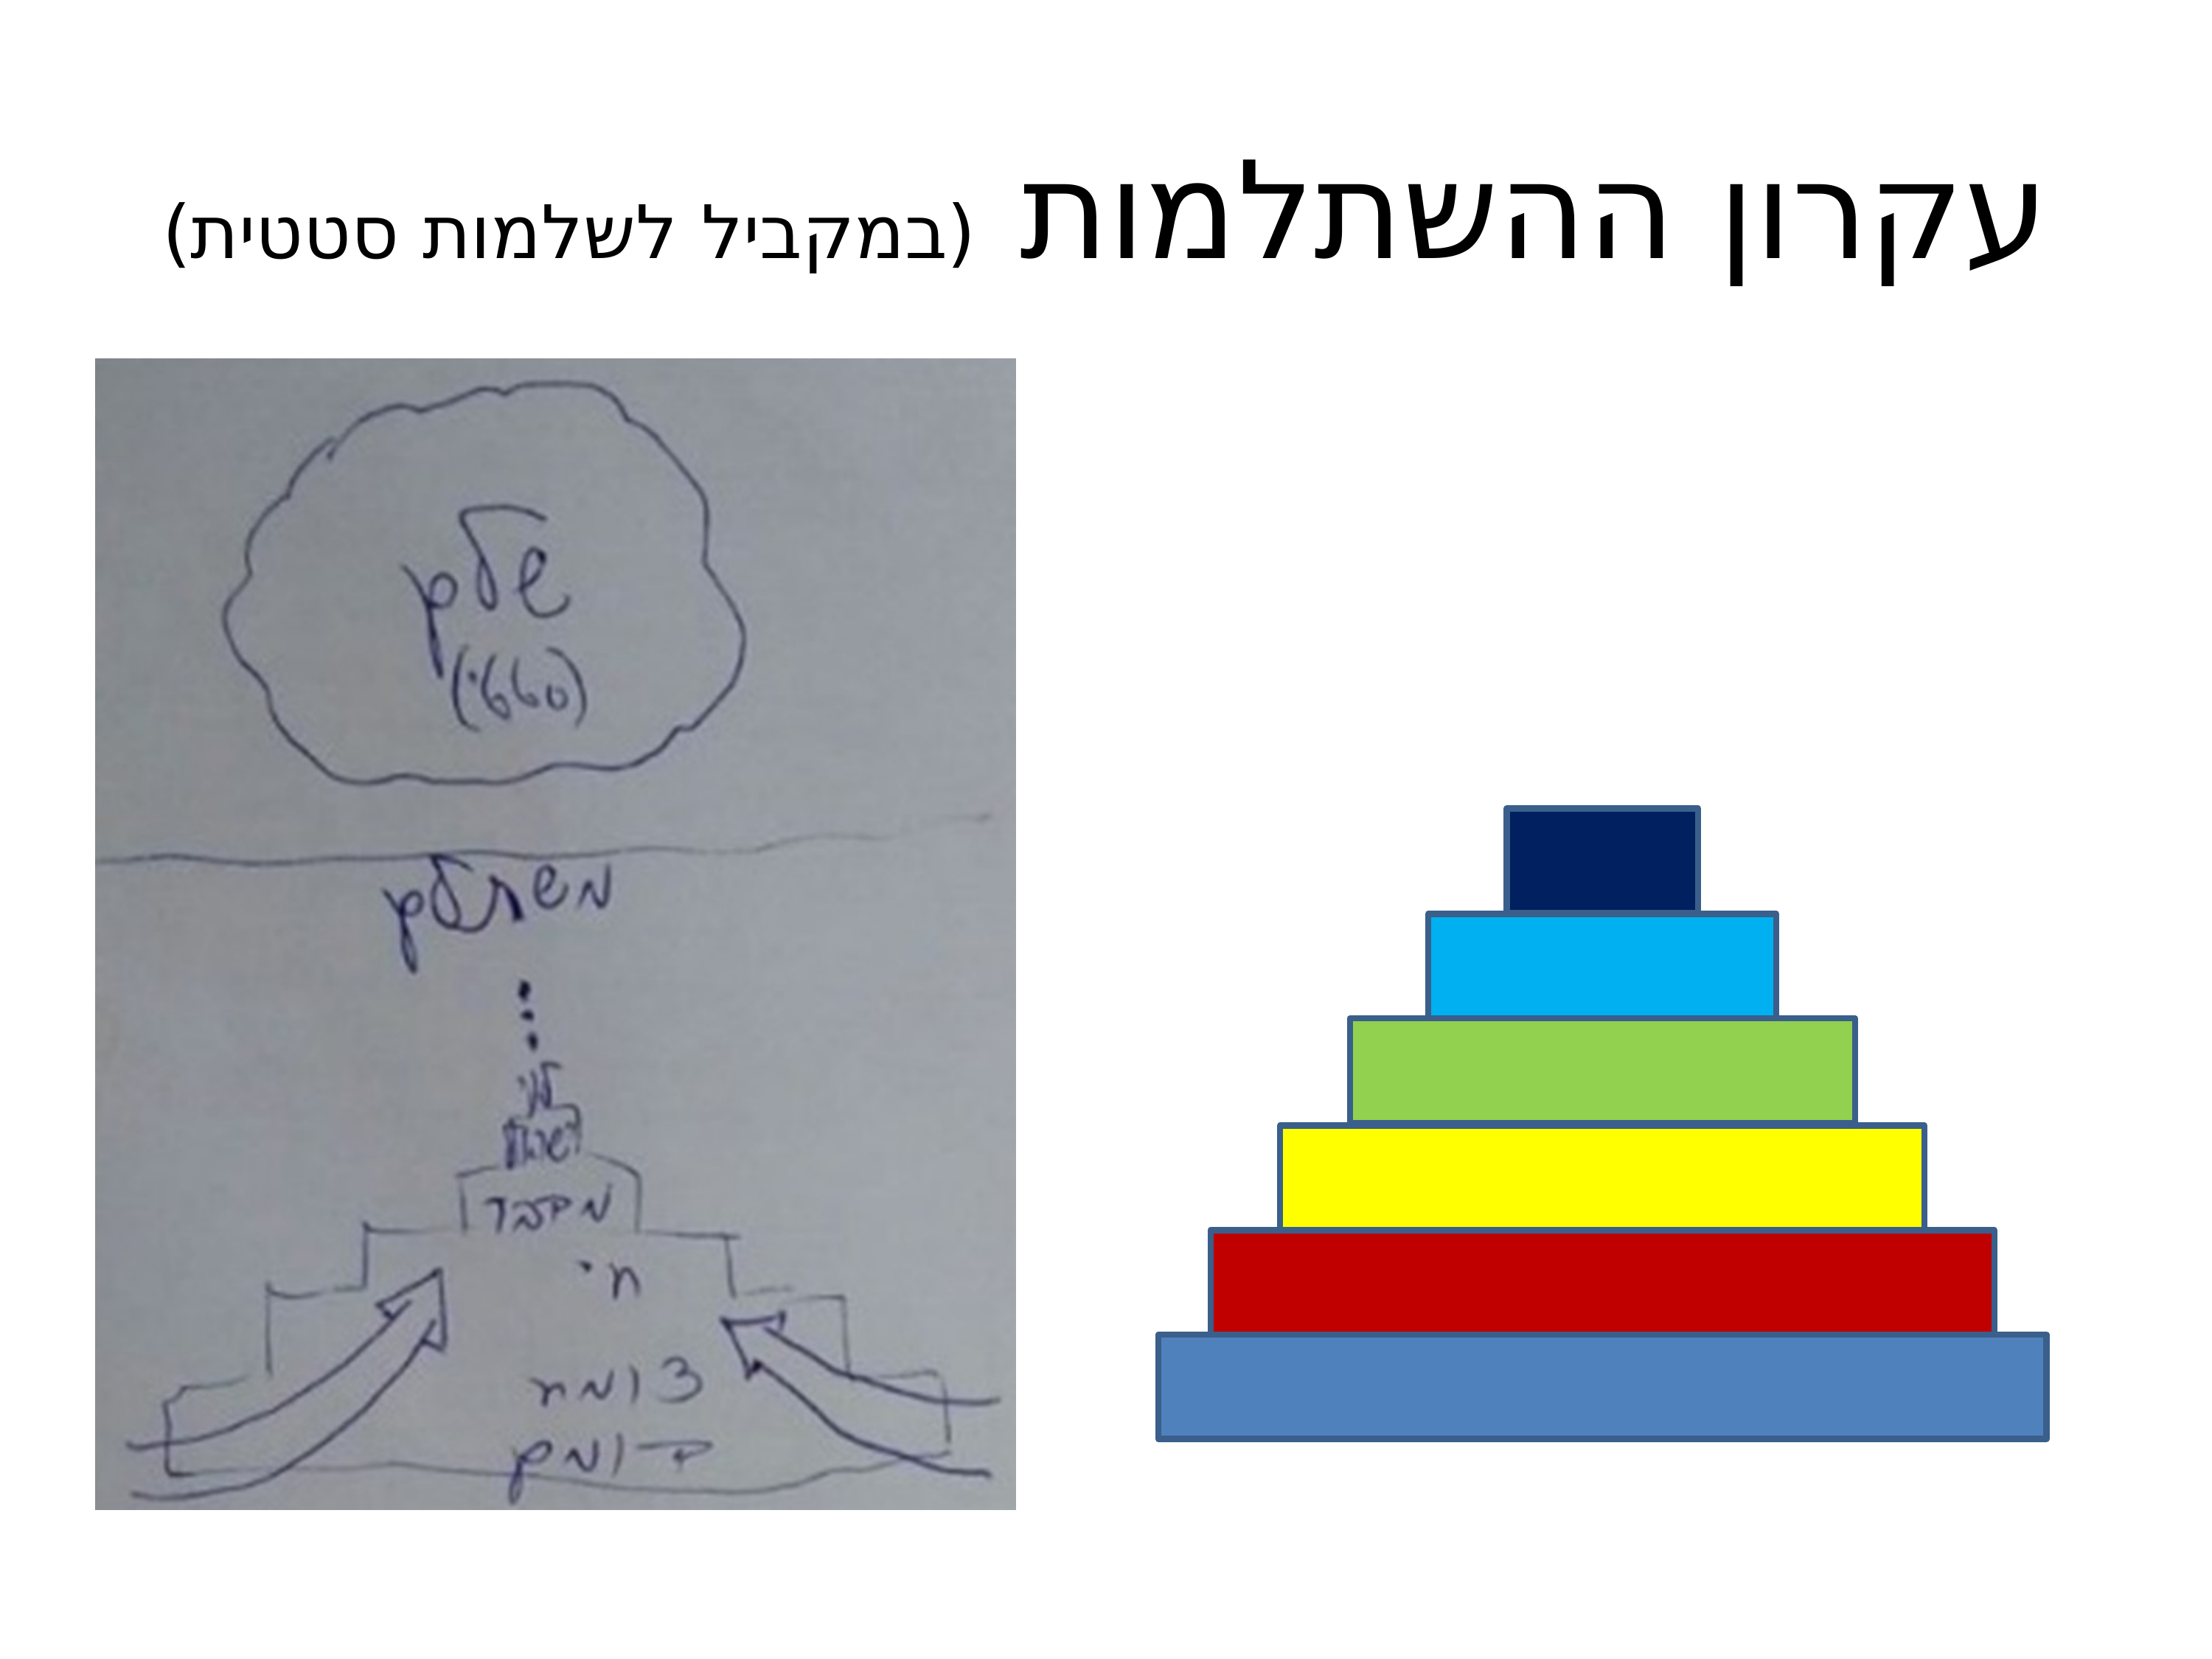 עקרון ההשתלמות (במקביל לשלמות סטטית)
שלם
(סטטי)
משתלם
מדבר
חי
צומח
דומם